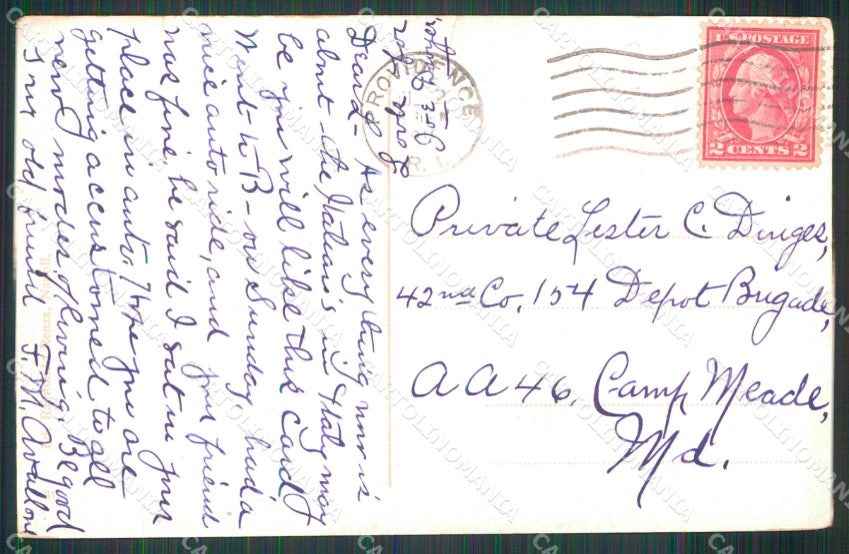 Dear L- As everything now is
about the Italian's in Italy may
be you will like this card,
Went to B- on Sunday had a
nice auto ride, and your friend
was fine, he said I sat in your
place in auto, I hope you are
getting accustomed to all
new modes of living. Be good
I my old friend F. M. Avallone
PROVIDENCE
R.I.
U.S. POSTAGE
2 CENTS 2
Private Lester C. Dinges,
42nd Co, 154 Depot Brigade,
AA46, Camp Meade,
Md.
CARTOLINOMANIA